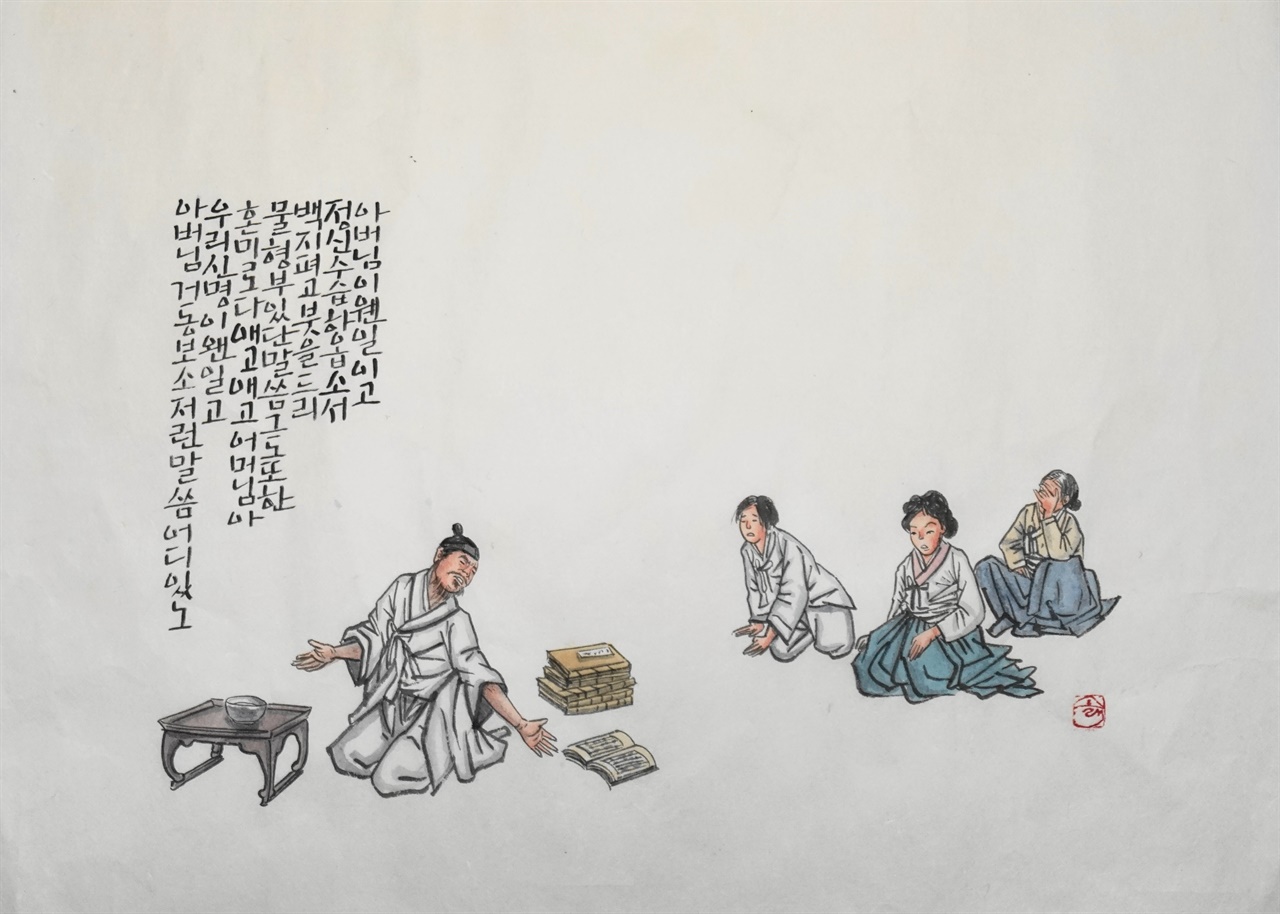 아버님이웬일이고
정신수습하옵소서
백지펴고붓을드리
물형부있단말씀그도또한
혼미로다애고애고어머님아
우리신명이왠일고
아버님거동보소저런말씀어디있노